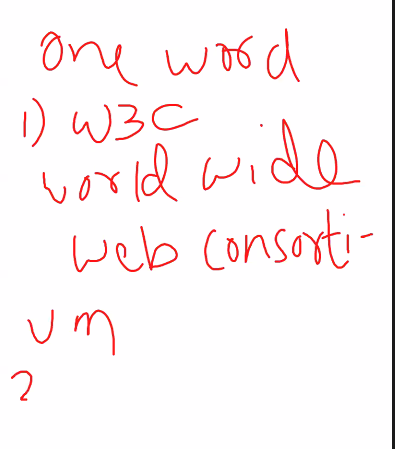 one word
1) W3C
world wide
web consorti-
um
2